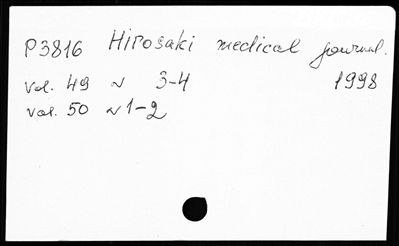 P3816 Hirosaki medical journal.
Vol. 49 N 3-4 1998
Vol. 50 N 1-2